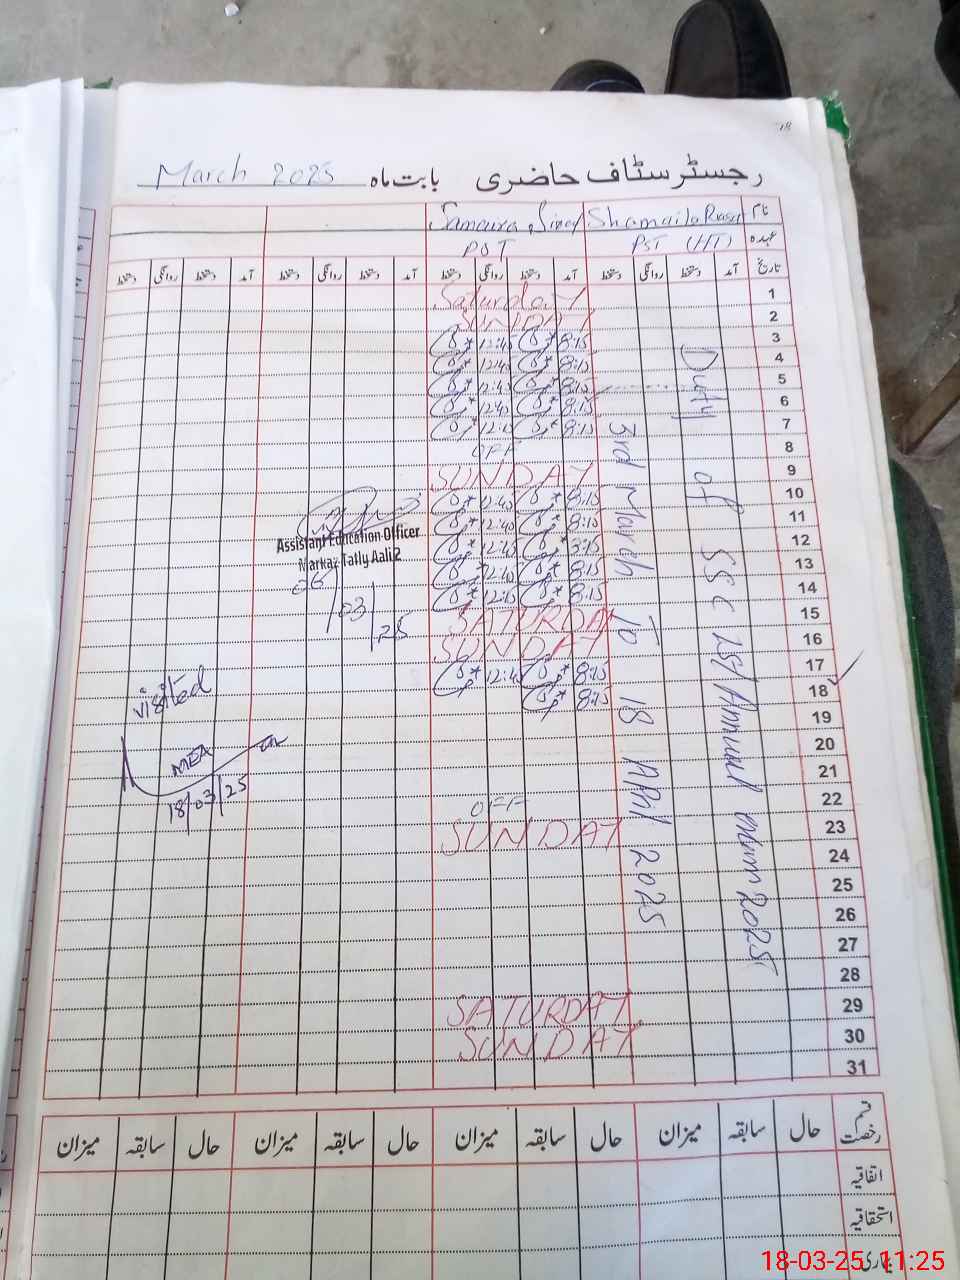 رجسٹر سٹاف حاضری بابت ماہ March 2025
نام Shamaila Samaira
عہدہ PST (HT) PST
تاریخ آمد دستخط روانگی دستخط آمد دستخط روانگی دستخط آمد دستخط روانگی دستخط آمد دستخط روانگی دستخط
1 Saturday
2 SUNDAY
3 8:15 12:45
4 8:15 12:45
5 8:15 12:45
6 8:15 12:45
7 8:15 12:15
8 OFF
9 SUNDAY
10 8:15 12:45
11 8:15 12:45
12 8:15 12:45
13 8:15 12:45
14 8:15 12:15
15 SATURDAY
16 SUNDAY
17 8:15 12:45
18 8:15
19
20
21
22 OFF
23 SUNDAY
24
25
26
27
28
29 SATURDAY
30 SUNDAY
31
Duty of SSC 1st Annual exam 2025
3rd March To 18 April 2025
Assistant Education Officer
Markaz Tatly Aali 2
06/03/25
visited
MEA
18/03/25
قسم رخصت حال سابقہ میزان حال سابقہ میزان حال سابقہ میزان حال سابقہ میزان
اتفاقیہ
استحقاقیہ
بیماری
18-03-25 11:25